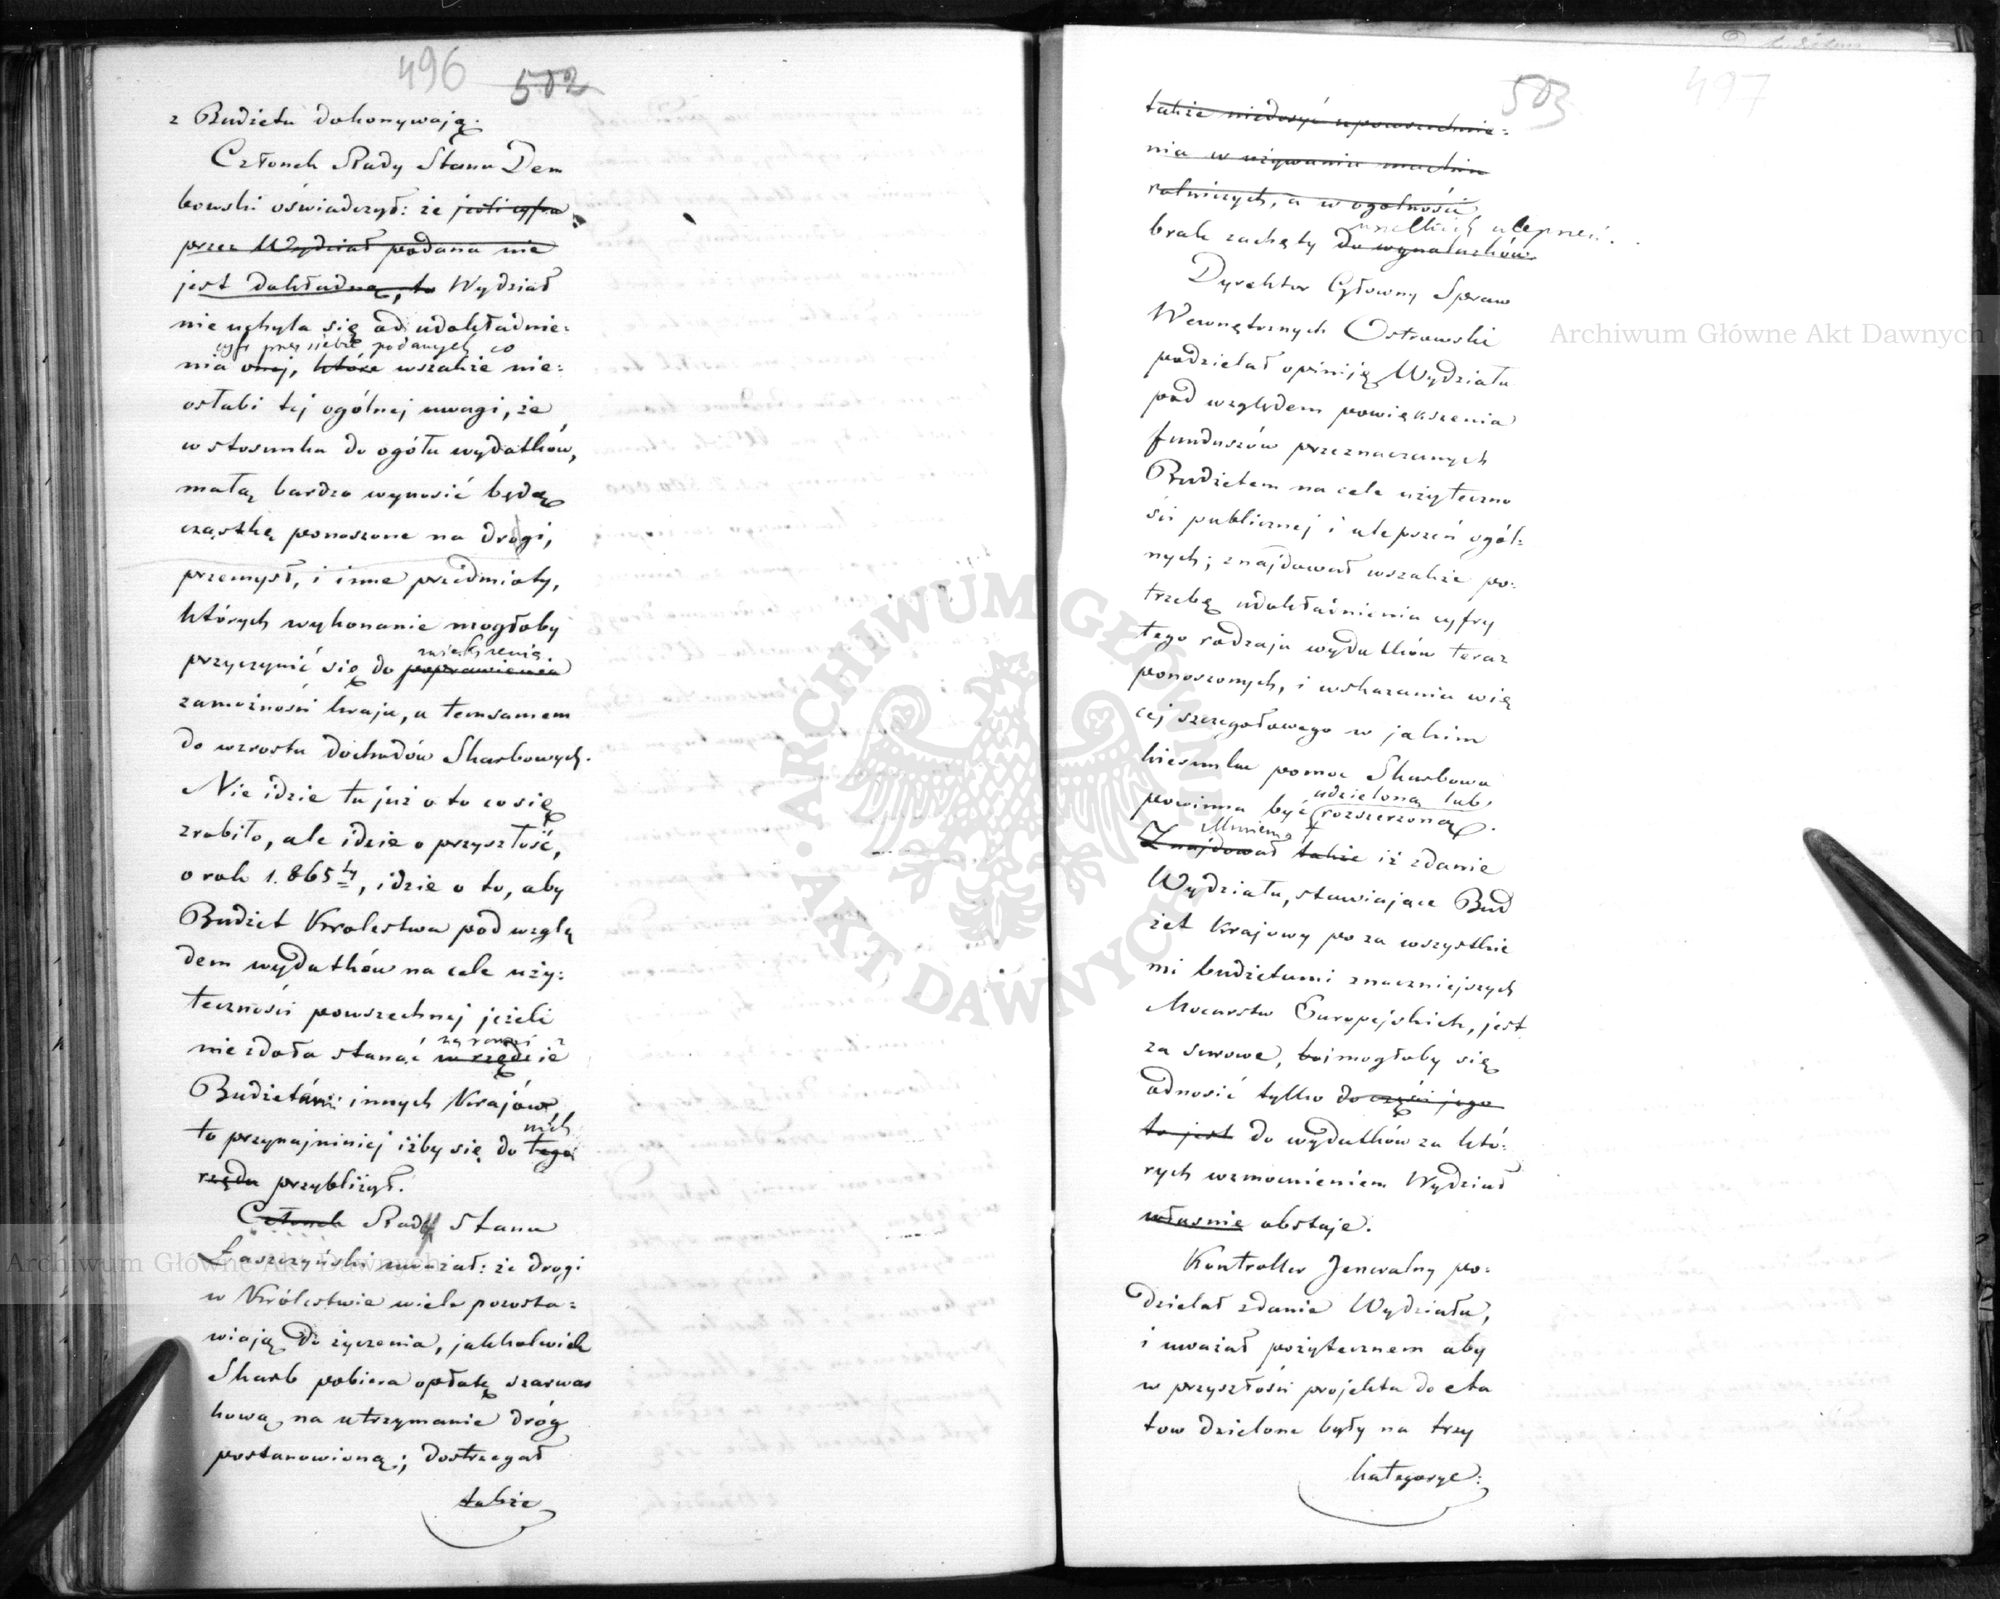 496 502
z Budżetu dokonywają.
Członek Rady Stanu Dem
bowski oświadczył: że jeśli cyfra
przez Wydział podana nie
jest dokładną, to Wydział
nie uchyla się od udokładnie:
cyfr przez siebie podanych co
nia onej, które wszakże nie:
osłabi tej ogólnej uwagi, że
w stosunku do ogółu wydatków,
małą bardzo wynosić będą
cząstkę ponoszone na drogi,
przemysł, i inne przedmioty,
których wykonanie mogłoby
zwiększenia
przyczynić się do poprawienia
zamożności kraju, a temsamem
do wzrostu dochodów Skarbowych.
Nie idzie tu już o to co się
zrobiło, ale idzie o przyszłość,
o rok 1.865ty, idzie o to, aby
Budżet Królestwa pod wzglę
dem wydatków na cele uży:
teczności powszechnej jeżeli
na równi z
nie zdoła stanąć w rzędzie
Budżetami innych Krajów,
nich
to przynajmniej iżby się do tego
rzędu przybliżył.
Członek Rady Stanu
Łaszczyński uważał: że drogi
w Królestwie wiele pozosta:
wiają do życzenia, jakkolwiek
Skarb pobiera opłatę szarwar
kową na utrzymanie dróg
postanowioną; dostrzegał
także
503 497
także niedosyć upowszechnie:
nia w używaniu machin
rolniczych, a w ogólności
wszelkich ulepszeń.
brak zachęty do wynalazków.
Dyrektor Główny Spraw
Wewnętrznych Ostrowski
podzielał opiniję Wydziału
pod względem powiększenia
funduszów przeznaczonych
Budżetem na cele użyteczno
ści publicznej i ulepszeń ogól:
nych; znajdował wszakże po:
trzebę udokładnienia cyfry
tego rodzaju wydatków teraz
ponoszonych, i wskazania wię
cej szczegółowego w jakim
kierunku pomoc Skarbowa
udzieloną lub
powinna być rozszerzoną.
Mniema
Znajdował także iż zdanie
Wydziału, stawiające Bud
żet Krajowy poza wszystkie
mi budżetami znaczniejszych
Mocarstw Europejskich, jest
za surowe, boi mogłoby się
odnosić tylko do części jego
to jest do wydatków za któ:
rych wzmocnieniem Wydział
właśnie obstaje.
Kontroller Jeneralny po:
dzielał zdanie Wydziału,
i uważał pożytecznem aby
w przyszłości projekta do eta
tow dzielone były na trzy
kategorye:
Archiwum Główne Akt Dawnych
Archiwum Główne Akt Dawnych
ARCHIWUM GŁÓWNE AKT DAWNYCH